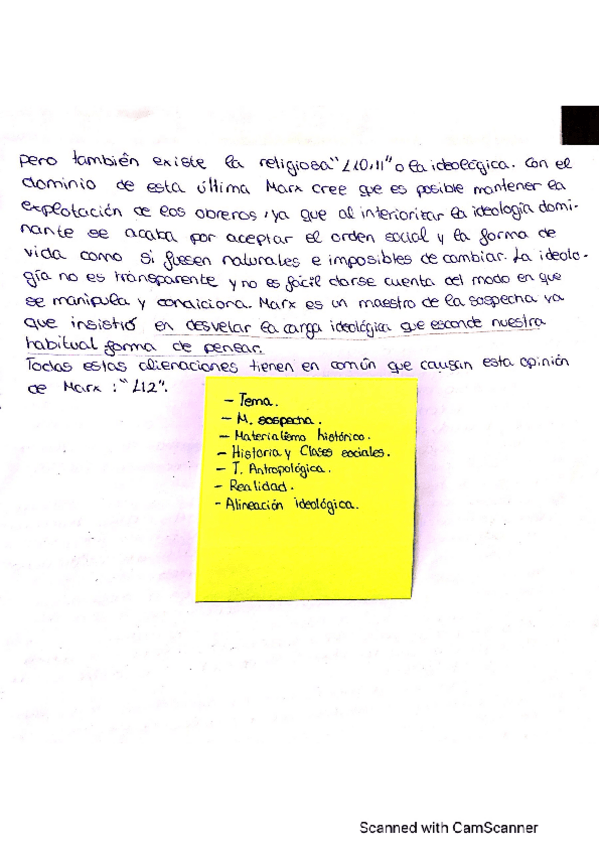 pero también existe la religiosa "L10,11" o la ideológica. Con el
dominio de esta última Marx cree que es posible mantener la
explotación de los obreros, ya que al interiorizar la ideología domi-
nante se acaba por aceptar el orden social y la forma de
vida como si fuesen naturales e imposibles de cambiar. La ideolo-
gía no es transparente y no es fácil darse cuenta del modo en que
se manipula y condiciona. Marx es un maestro de la sospecha ya
que insistió en desvelar la carga ideológica que esconde nuestra
habitual forma de pensar.
Todas estas alienaciones tienen en común que causan esta opinión
de Marx : "L12".
- Tema.
- M. sospecha.
- Materialismo histórico.
- Historia y Clases sociales.
- T. Antropológica.
- Realidad.
- Alineación ideológica.
Scanned with CamScanner